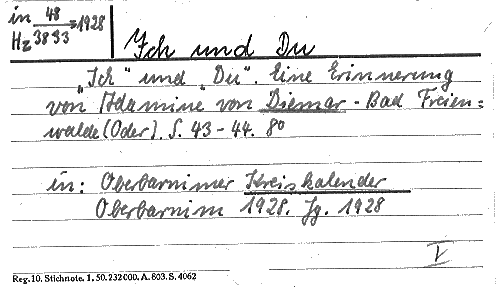 in 48 = 1928
Hz 3893
Ich und Du
„Ich“ und „Du“. Eine Erinnerung
von Adamine von Diemar - Bad Freien=
walde (Oder). S. 43 - 44. 8o
in: Oberbarnimer Kreiskalender
Oberbarnim 1928. Jg. 1928
V
Reg. 10. Stichnote. 1. 50. 232000. A. 803. S. 4062